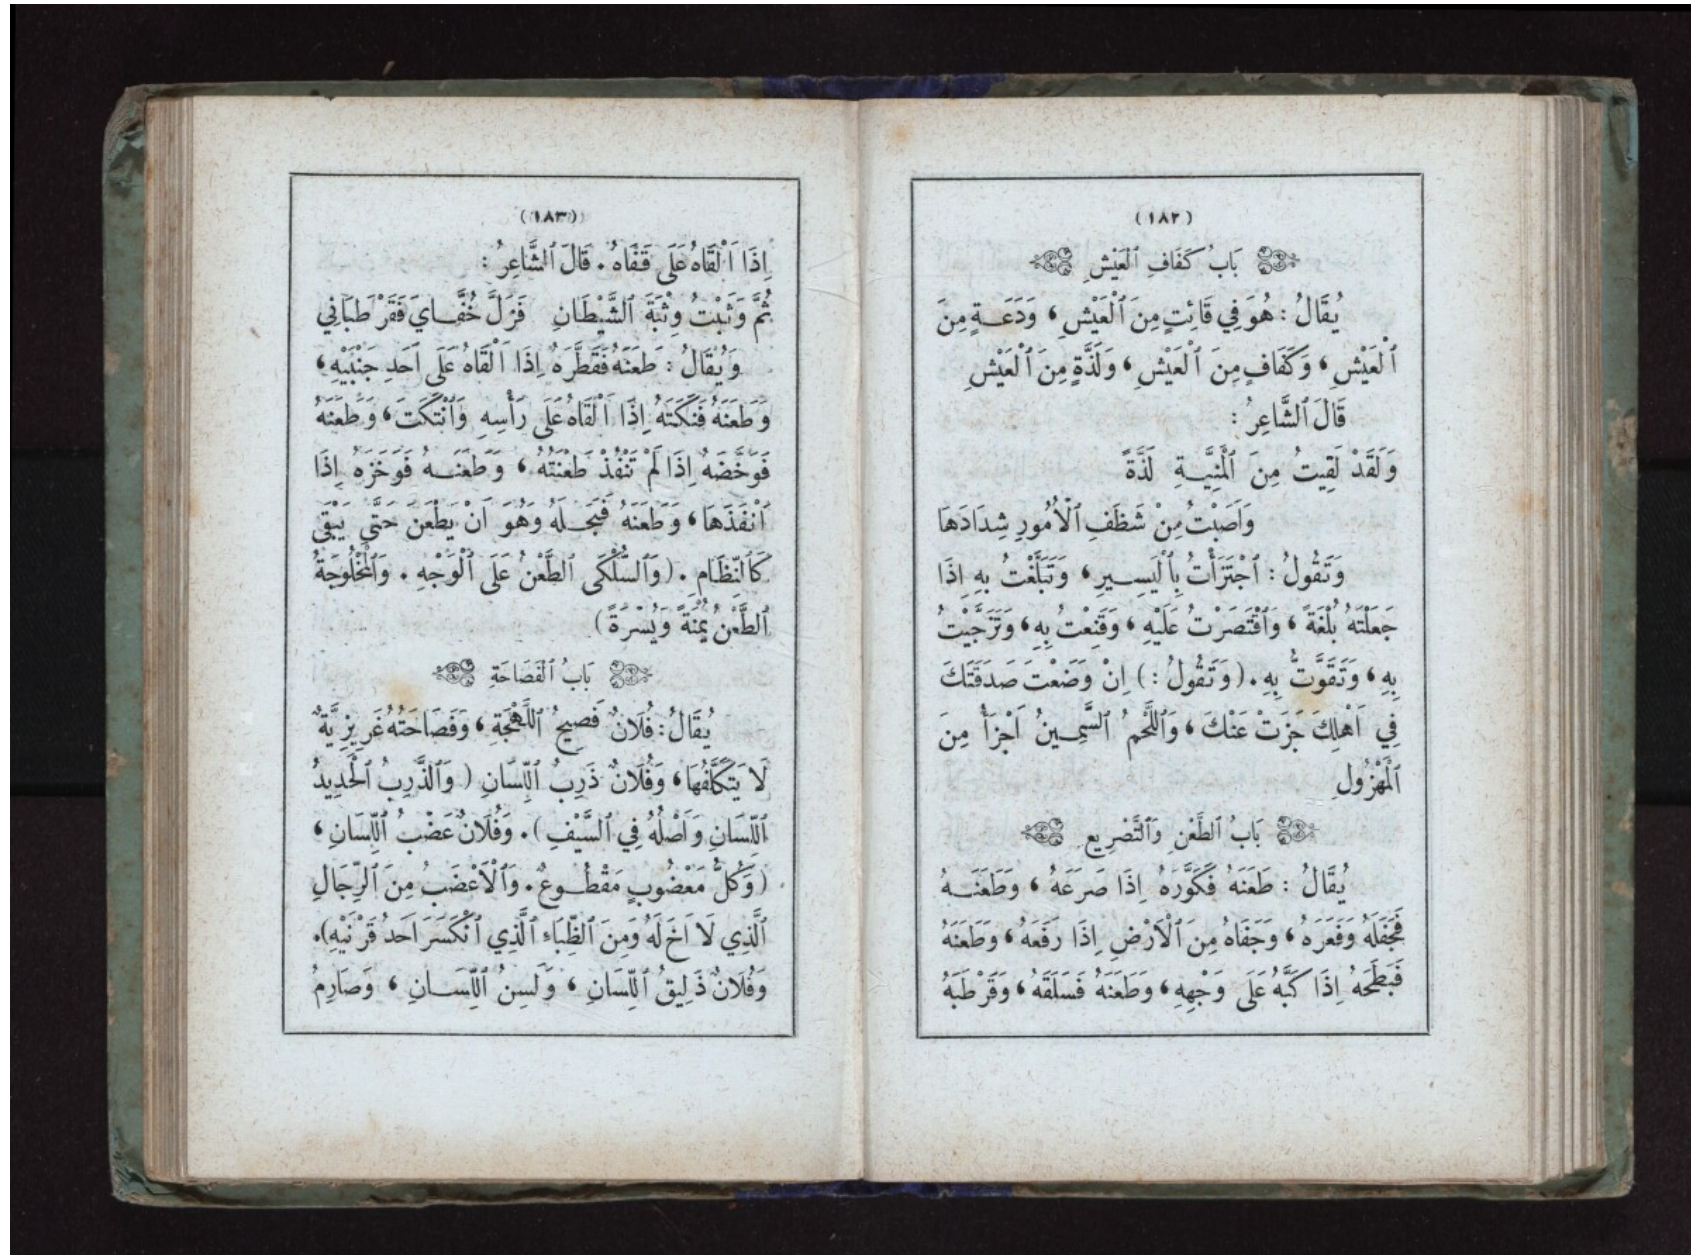 (١٨٢)
بَابُ كَفَافِ ٱلْعَيْشِ
يُقَالُ : هُوَ فِي قَائِتٍ مِنَ ٱلْعَيْشِ ، وَدَعَةٍ مِنَ
ٱلْعَيْشِ ، وَكَفَافٍ مِنَ ٱلْعَيْشِ ، وَلَذَّةٍ مِنَ ٱلْعَيْشِ
قَالَ ٱلشَّاعِرُ :
وَلَقَدْ لَقِيتُ مِنَ ٱلْمَنِيَّةِ لَذَّةً
وَاَصَبْتُ مِنْ شَظَفِ ٱلْاُمُورِ شِدَادَهَا
وَتَقُولُ : ٱجْتَزَأْتُ بِٱلْيَسِيرِ ، وَتَبَلَّغْتُ بِهِ اِذَا
جَعَلْتَهُ بُلْغَةً ، وَٱقْتَصَرْتُ عَلَيْهِ ، وَقَنِعْتُ بِهِ ، وَتَزَجَّيْتُ
بِهِ ، وَتَقَوَّتُّ بِهِ . (وَتَقُولُ :) اِنْ وَضَعْتَ صَدَقَتَكَ
فِي اَهْلِكَ جَزَتْ عَنْكَ ، وَٱللَّحْمُ ٱلسَّمِينُ اَجْزَأُ مِنَ
ٱلْمَهْزُولِ
بَابُ ٱلطَّعْنِ وَٱلتَّصْرِيعِ
يُقَالُ : طَعَنَهُ فَكَوَّرَهُ اِذَا صَرَعَهُ ، وَطَعَنَهُ
فَجَفَلَهُ وَقَعَرَهُ ، وَجَفَاهُ مِنَ ٱلْاَرْضِ اِذَا رَفَعَهُ ، وَطَعَنَهُ
فَبَطَحَهُ اِذَا كَبَّهُ عَلَى وَجْهِهِ ، وَطَعَنَهُ فَسَلَقَهُ ، وَقَرْطَبَهُ
(١٨٣)
اِذَا اَلْقَاهُ عَلَى قَفَاهُ . قَالَ ٱلشَّاعِرُ :
ثُمَّ وَثَبْتُ وِثْبَةَ ٱلشَّيْطَانِ فَزَلَّ خُفَّايَ فَقَرْطَبَانِي
وَيُقَالُ : طَعَنَهُ فَقَطَّرَهُ اِذَا اَلْقَاهُ عَلَى اَحَدِ جَنْبَيْهِ ،
وَطَعَنَهُ فَنَكَتَهُ اِذَا اَلْقَاهُ عَلَى رَأْسِهِ وَٱنْتَكَتَ ، وَطَعَنَهُ
فَوَخَّضَهُ اِذَا لَمْ تَنْفُذْ طَعْنَتُهُ ، وَطَعَنَهُ فَوَخَزَهُ اِذَا
اَنْفَذَهَا ، وَطَعَنَهُ وَهُوَ اَنْ يَطْعَنَ حَتَّى يَبْقَى
كَٱلنِّظَامِ . (وَٱلسُّلْكَى ٱلطَّعْنُ عَلَى ٱلْوَجْهِ . وَٱلْمَخْلُوجَةُ
ٱلطَّعْنُ يَمْنَةً وَيَسْرَةً)
بَابُ ٱلْفَصَاحَةِ
يُقَالُ : فُلَانٌ فَصِيحُ ٱللَّهْجَةِ ، وَفَصَاحَتُهُ غَرِيزِيَّةٌ
لَا يَتَكَلَّفُهَا ، وَفُلَانٌ ذَرِبُ ٱللِّسَانِ (وَٱلذَّرِبُ ٱلْحَدِيدُ
ٱللِّسَانِ وَاَصْلُهُ فِي ٱلسَّيْفِ) . وَفُلَانٌ عَضْبُ ٱللِّسَانِ ،
(وَكُلُّ مَعْضُوبٍ مَقْطُوعٌ . وَٱلْاَعْضَبُ مِنَ ٱلرِّجَالِ
ٱلَّذِي لَا اَخَ لَهُ وَمِنَ ٱلظِّبَاءِ ٱلَّذِي ٱنْكَسَرَ اَحَدُ قَرْنَيْهِ).
وَفُلَانٌ ذَلِيقُ ٱللِّسَانِ ، وَلَسِنُ ٱللِّسَانِ ، وَصَارِمُ